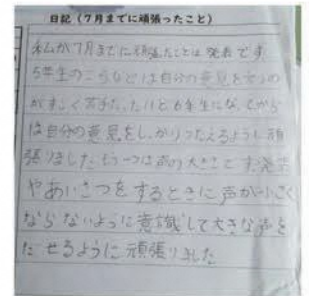 日記（7月までに頑張ったこと）
私が7月までに頑張ったことは発表です
5年生のころなどは自分の意見を言うの
がすごく苦手だったけど6年生になってから
は自分の意見をしっかりつたえるように頑
張りましたもう一つは声の大きさです発言
やあいさつをするときに声が小さく
ならないように意識して大きな声を
だせるように頑張りました